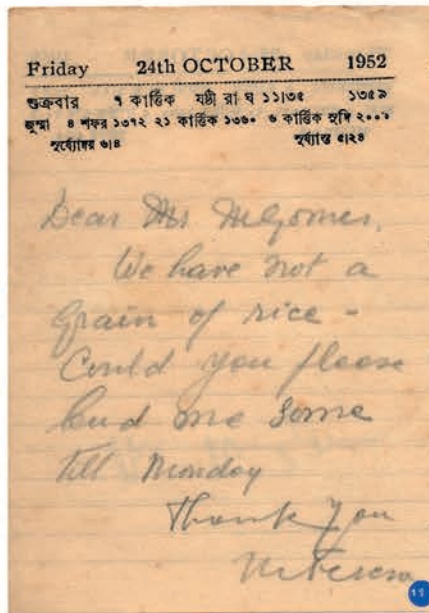 Friday 24th OCTOBER 1952
শুক্রবার ৭ কার্ত্তিক ষষ্ঠী রা ঘ ১১।৩৫ ১৩৫৯
জুম্মা ৪ শফর ১৩৭২ ২১ কার্ত্তিক ১৩৬০ ৬ কার্ত্তিক সুদি ২০০৯
সূর্য্যোদয় ৬।৪ সূর্য্যাস্ত ৫।২৪
Dear Mr MGomes,
We have not a
grain of rice -
Could you please
lend me some
till Monday
Thank you
M Teresa
11